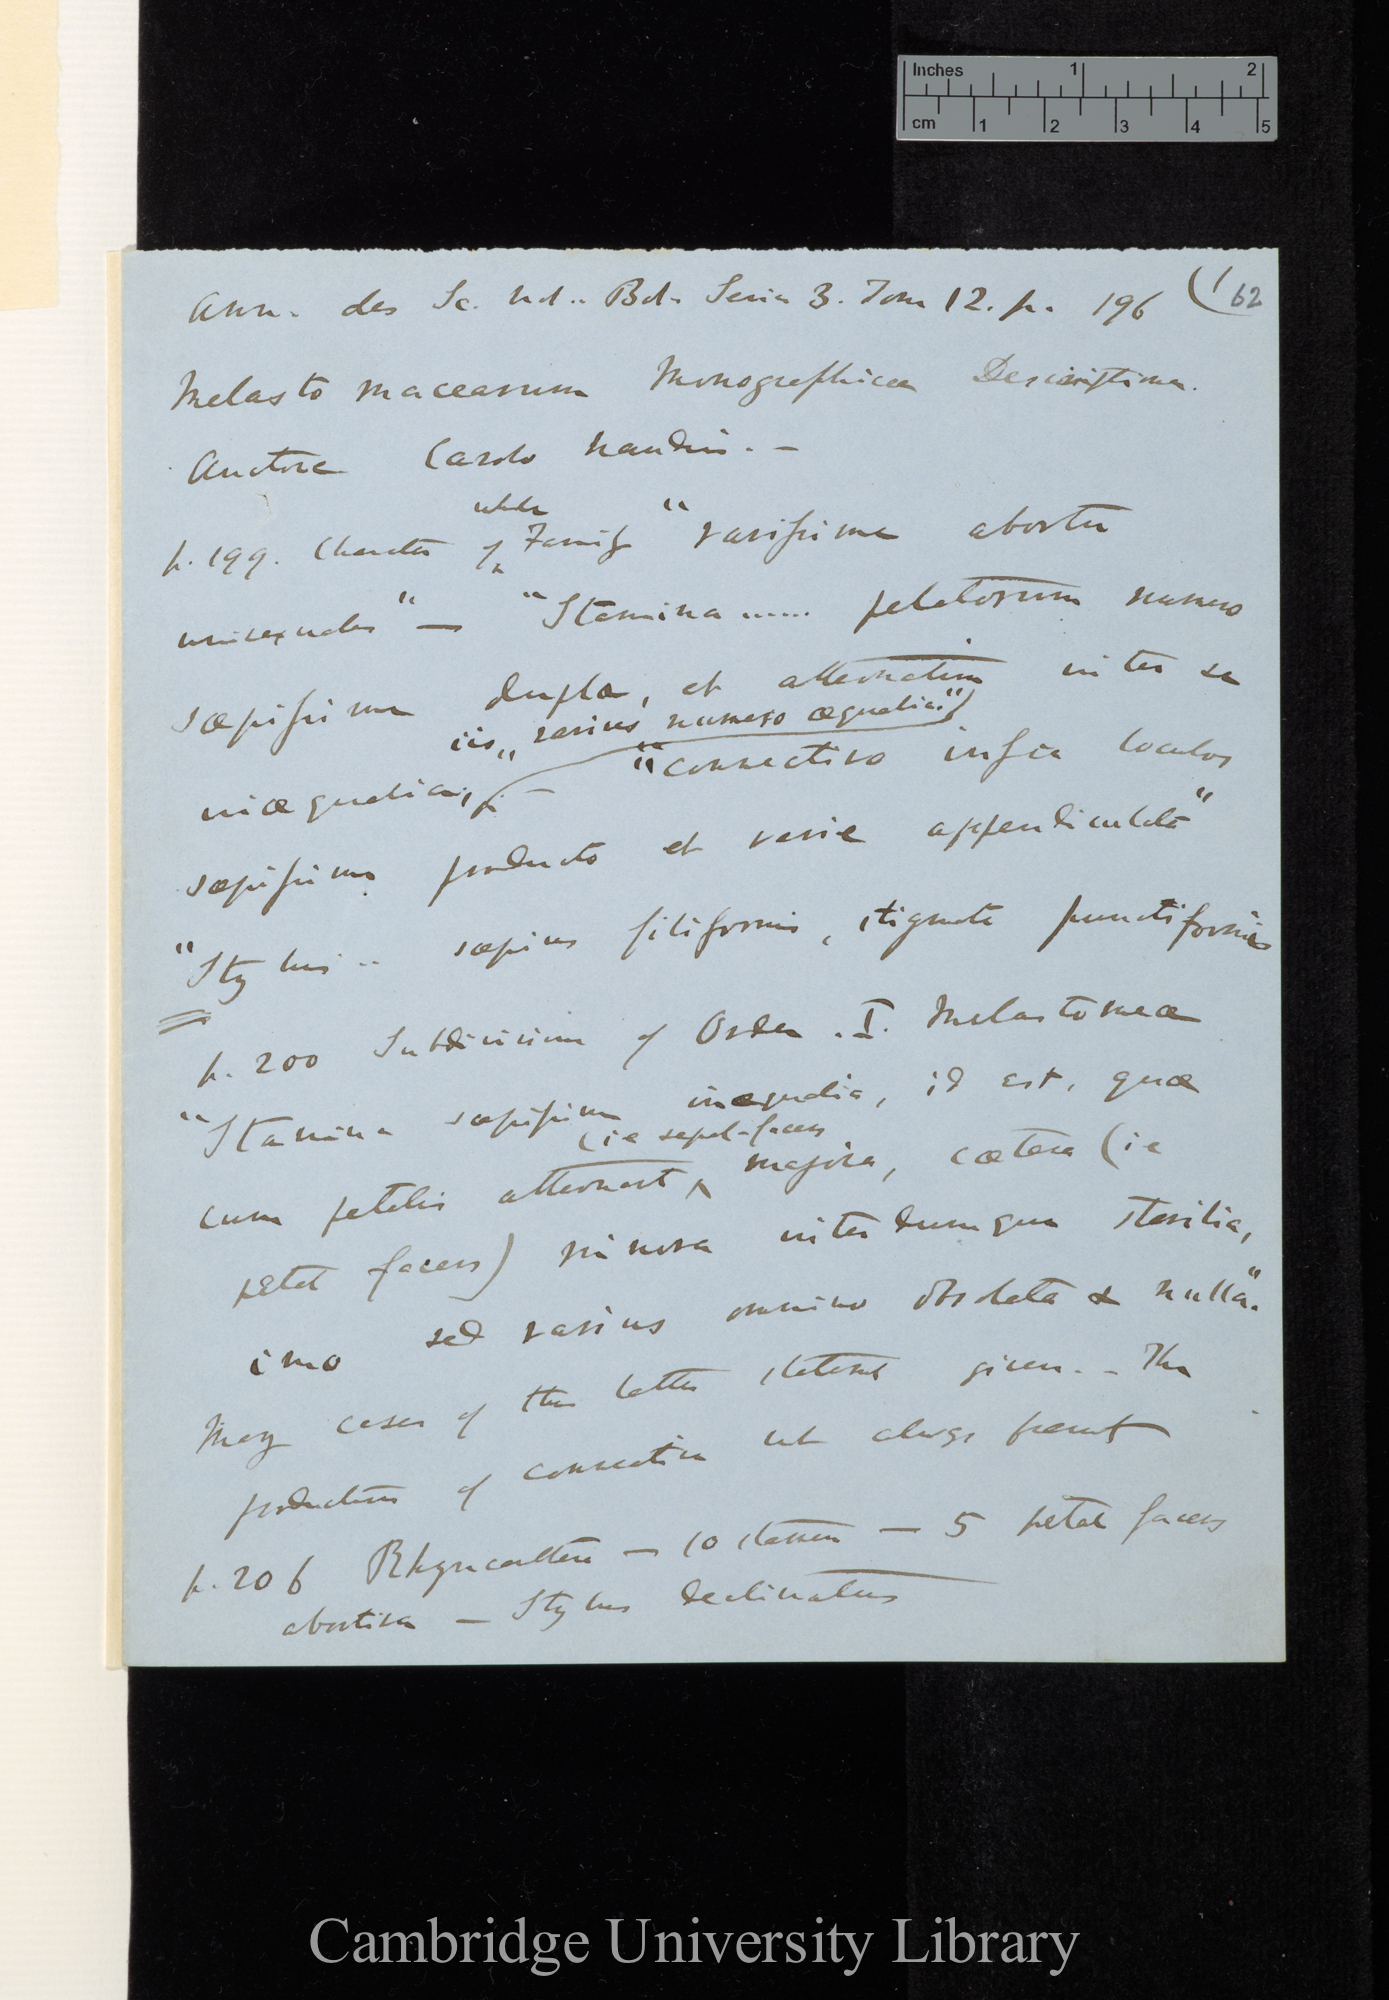 Inches 1 2
cm 1 2 3 4 5
Ann. des Sc. Nat.. Bot. Series 3. Tom 12. p. 196 (1
62
Melastomacearum Monographicæ Descriptiones.
Auctore Carolo Naudin. —
whole
p. 199. Character of Family "rarissime abortu
unisexuales" — "Stamina ...... petalorum numero
sæpissime dupla, et alternatim inter se
iis,, rarius numero æqualia;"
inæqualia;" — "connectivo infra loculos
sæpissime producto et varie appendiculato"
"Stylus .. sæpius filiformis, stigmate punctiformi
p. 200 Subdivision of Order . I. Melastomeæ
"Stamina sæpissime inæqualia, id est, quæ
(ie sepal-facers
cum petalis alternant, majora, cætera (ie
petal facers) minora interdumque sterilia,
imo sed rarius omnino obsoleta & nulla".
Many cases of the latter statement given. — The
production of connective not always present
p. 206 Rhynchanthera — 10 stamens — 5 petal facers
abortive — Stylus declinatus
Cambridge University Library